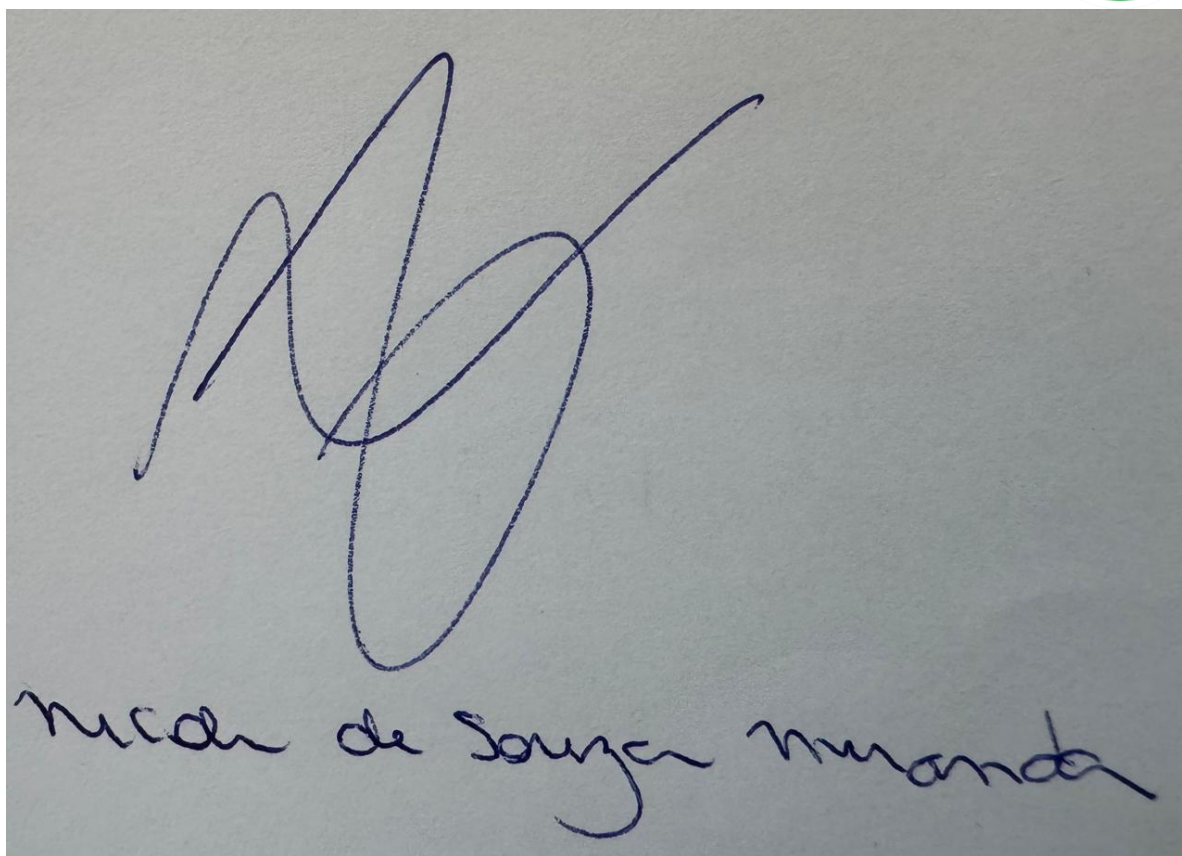 Nicole de Souza Miranda